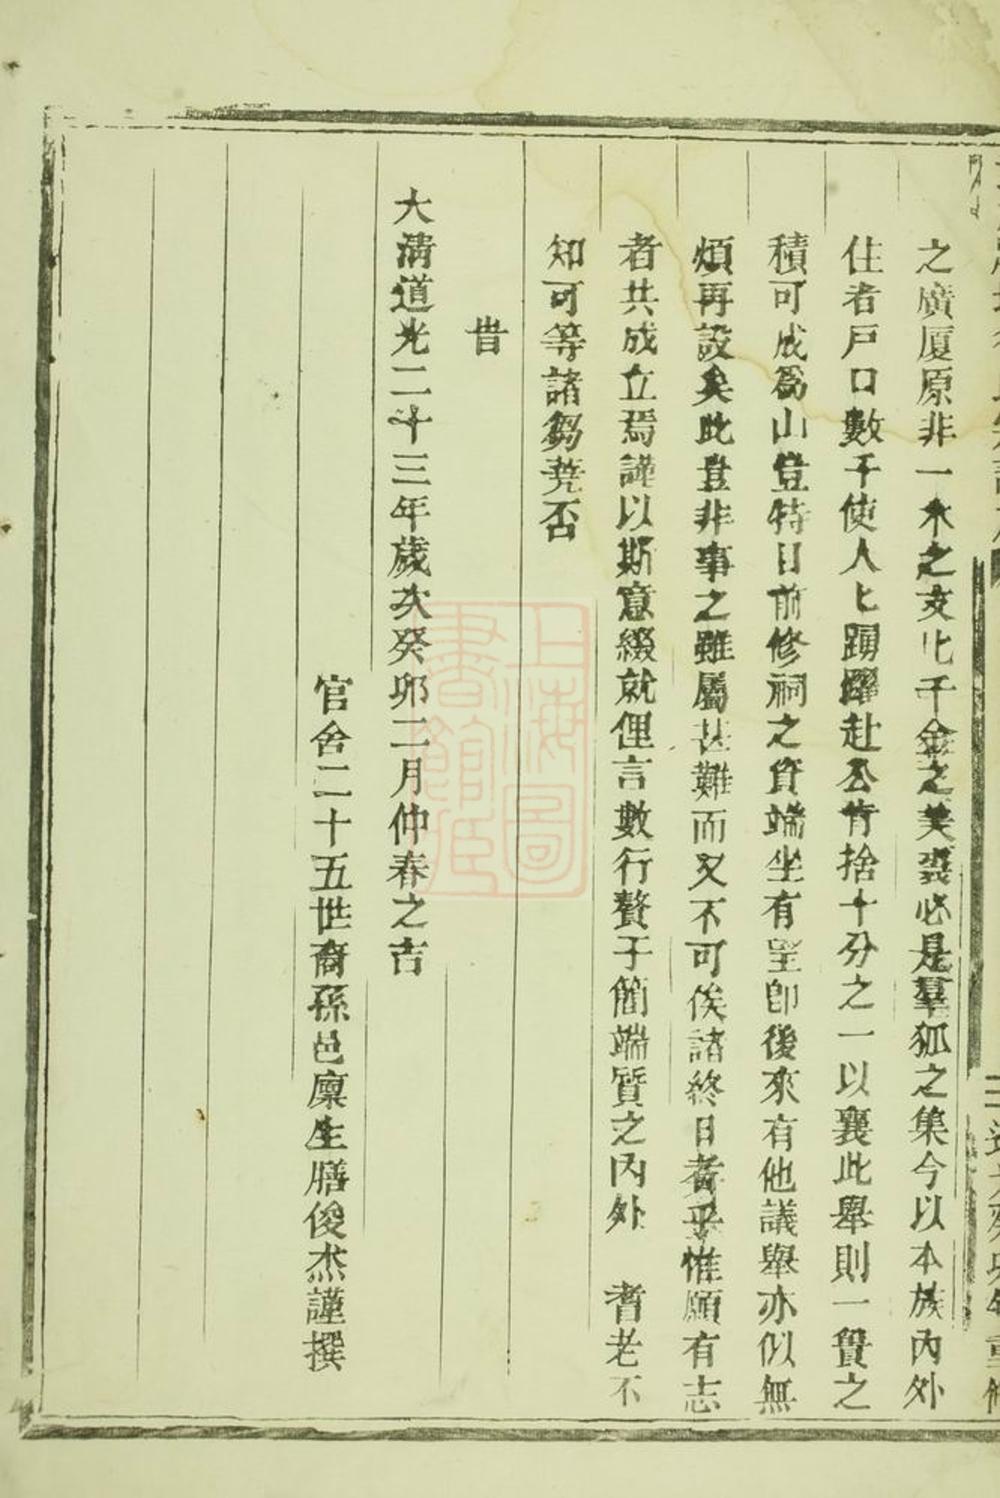 之廣厦原非一木之支化千金之美裘必是羣狐之集今以本族內外
住者戸口數千使人匕踴躍赴公肯捨十分之一以襄此舉則一簣之
積可成爲山豈特目前修祠之資端坐有望卽後來有他議舉亦似無
煩再設矣此豈非事之雖屬甚難而又不可俟諸終日者乎惟願有志
者共成立焉謹以斯意綴就俚言數行贅于簡端質之內外 耆老不
知可等諸芻蕘否
旹
大淸道光二十三年歲次癸卯二月仲春之吉
官舍二十五世裔孫邑廩生膳俊杰謹撰
上海圖書館藏